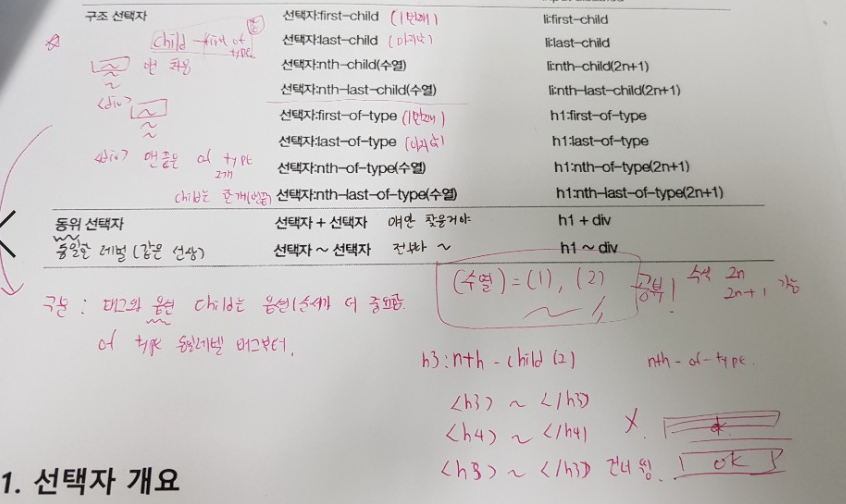 구조 선택자 선택자:first-child (1번째) li:first-child
선택자:last-child (마지막) li:last-child
선택자:nth-child(수열) li:nth-child(2n+1)
선택자:nth-last-child(수열) li:nth-last-child(2n+1)
선택자:first-of-type (1번째) h1:first-of-type
선택자:last-of-type (마지막) h1:last-of-type
선택자:nth-of-type(수열) h1:nth-of-type(2n+1)
선택자:nth-last-of-type(수열) h1:nth-last-of-type(2n+1)
child of type
맨 처음
<div>
<div> of type
2개
child는
동위 선택자 선택자 + 선택자 h1 + div
레벨 (같은 선상) 선택자 ~ 선택자 전부다 ~ h1 ~ div
(수열) = (1), (2) 공부! 수식 2n
2n+1 가능
구분 : 태그와 옵션 child는 옵션(순서가 더 중요함
of type 동일레벨 태그부터.
h3:nth-child(2) nth-of-type.
<h3> ~ </h3>
<h4> ~ </h4> X
<h3> ~ </h3> 건너뜀. ok
1. 선택자 개요